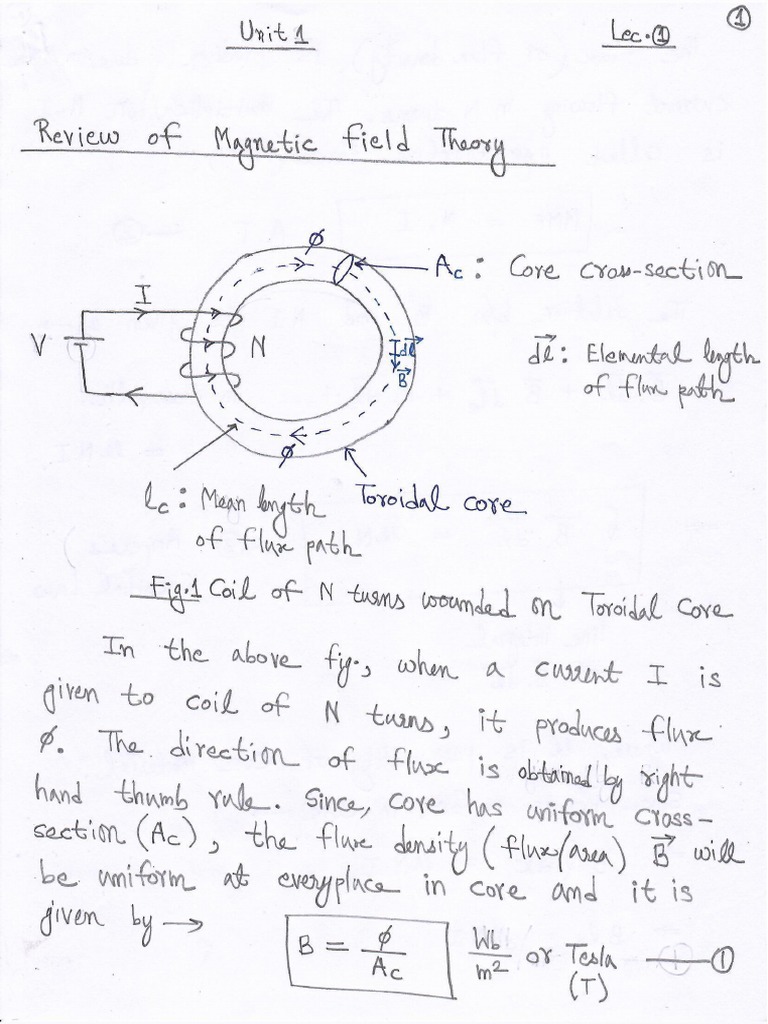 ①
Unit 1
Lec.①
Review of Magnetic Field Theory
ϕ
I
V
N
Ac : Core cross-section
dl⃗
B⃗
dl⃗ : Elemental length
of flux path
ϕ
lc : Mean length
of flux path
Toroidal core
Fig.1 Coil of N turns wounded on Toroidal Core
In the above fig., when a current I is
given to coil of N turns, it produces flux
ϕ. The direction of flux is obtained by right
hand thumb rule. Since, core has uniform cross-
section (Ac), the flux density (flux/area) B⃗ will
be uniform at everyplace in core and it is
given by → B = ϕ/Ac Wb/m² or Tesla (T) —①